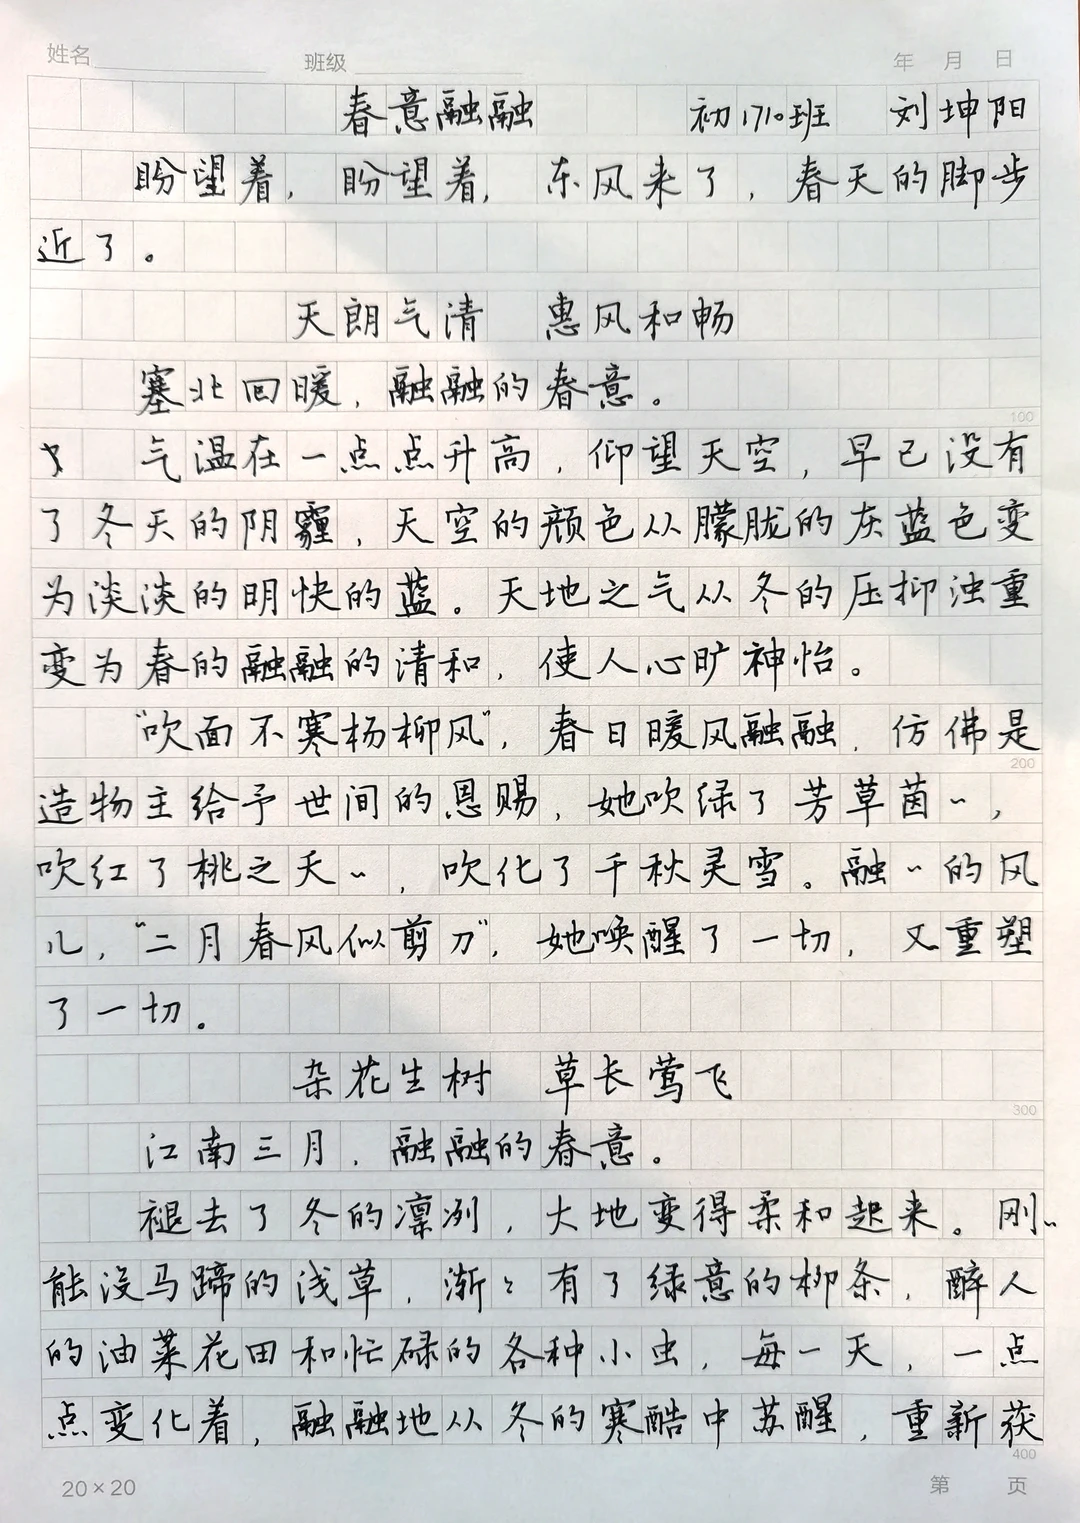 姓名 班级 年 月 日
春意融融 初1710班 刘坤阳
盼望着，盼望着，东风来了，春天的脚步
近了。
天朗气清 惠风和畅
塞北回暖，融融的春意。
100
气温在一点点升高，仰望天空，早已没有
了冬天的阴霾，天空的颜色从朦胧的灰蓝色变
为淡淡的明快的蓝。天地之气从冬的压抑浊重
变为春的融融的清和，使人心旷神怡。
“吹面不寒杨柳风”，春日暖风融融，仿佛是
200
造物主给予世间的恩赐，她吹绿了芳草茵〜，
吹红了桃之夭〜，吹化了千秋灵雪。融〜的风
儿，“二月春风似剪刀”，她唤醒了一切，又重塑
了一切。
杂花生树 草长莺飞
300
江南三月，融融的春意。
褪去了冬的凛冽，大地变得柔和起来。刚〜
能没马蹄的浅草，渐〻有了绿意的柳条，醉人
的油菜花田和忙碌的各种小虫，每一天，一点
点变化着，融融地从冬的寒酷中苏醒，重新获
400
20×20 第 页